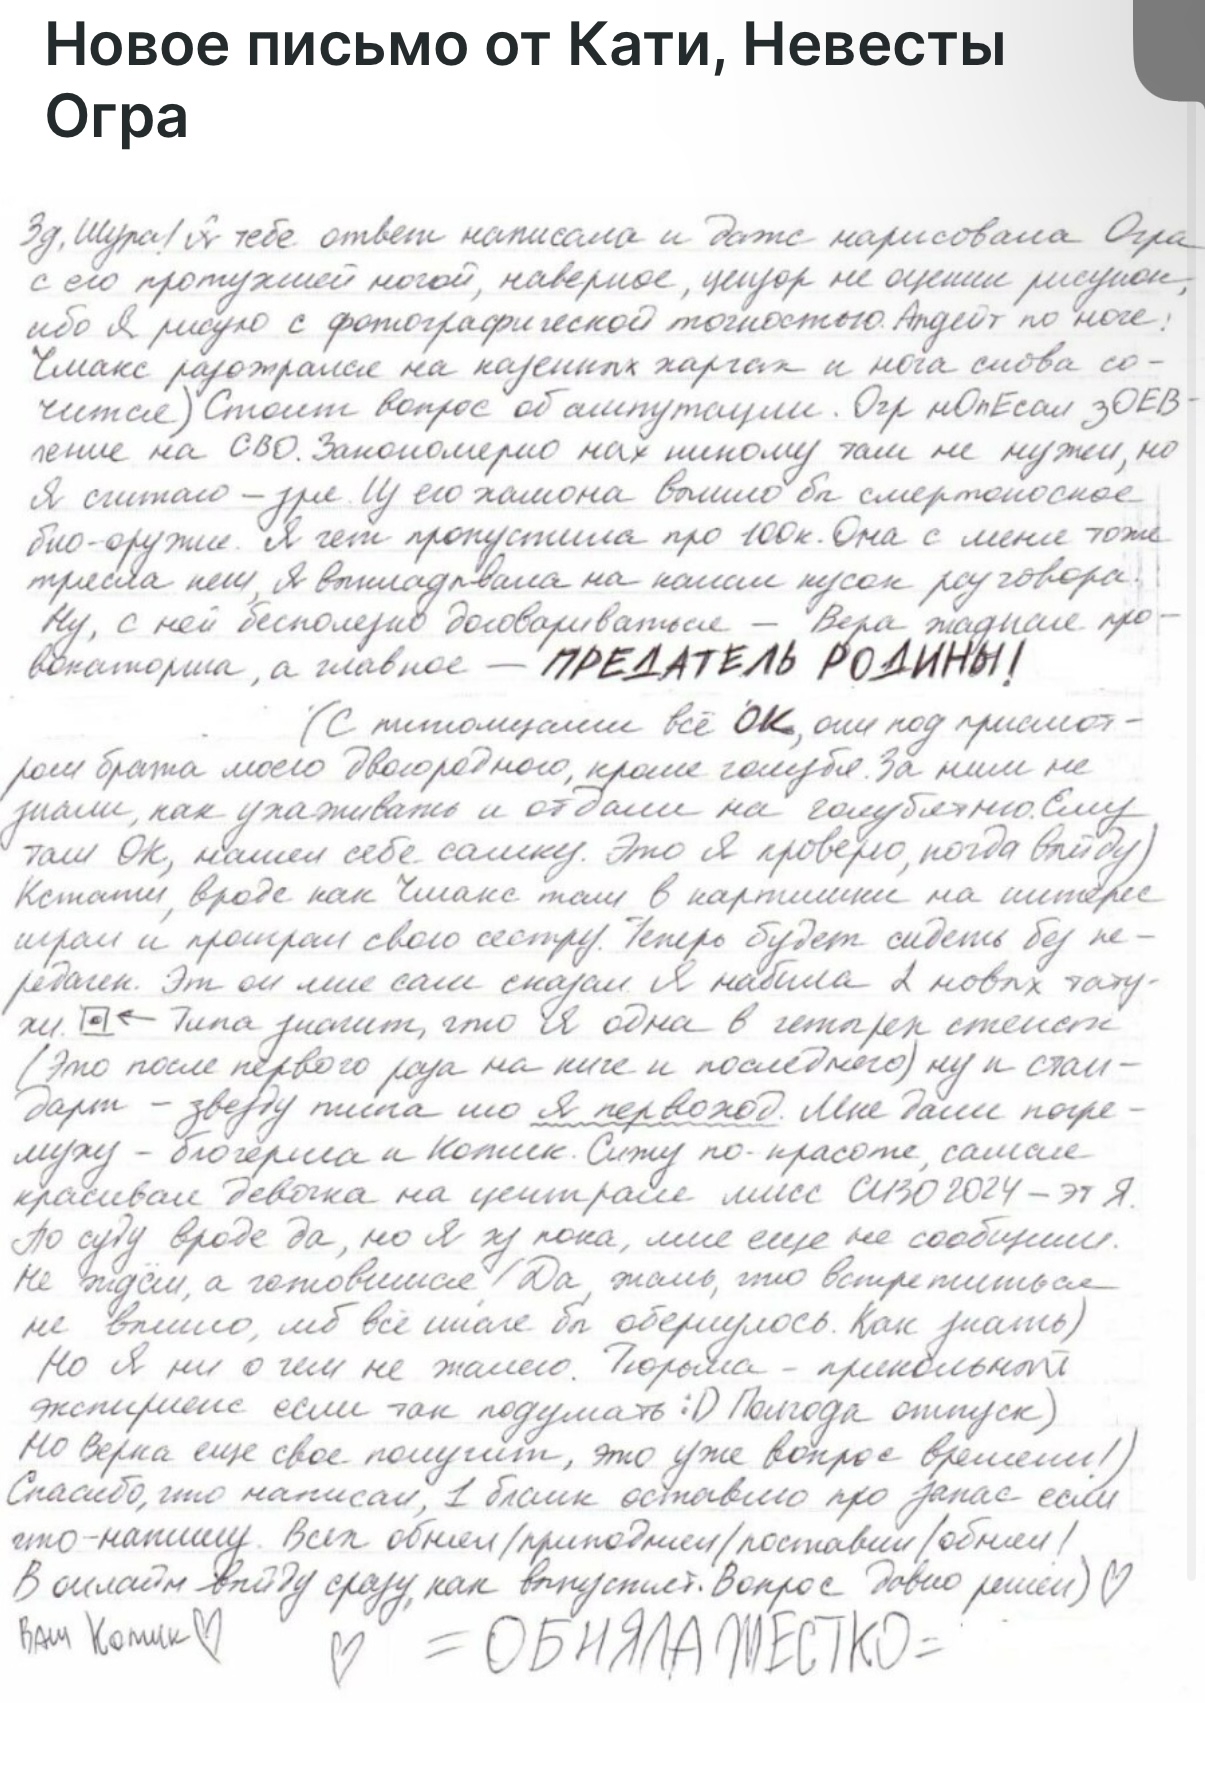 Новое письмо от Кати, Невесты
Огра
Зд, Шура! Я тебе ответ написала и даже нарисовала Огра
с его протухшей ногой, наверное, цензор не оценил рисунок,
ибо Я рисую с фотографической точностью. Апдейт по ноге:
Чмакс разожрался на казенных харчах и нога снова со-
чится) Стоит вопрос об ампутации. Огр нОпЕсал зОЕВ-
ление на СВО. Закономерно нах никому там не нужен, но
Я считаю – зря. Из его хамона вышло бы смертоносное
био-оружие. Я чет пропустила про 100к. Она с меня тоже
трясла кеш, Я выкладывала на канал кусок разговора.
Ну, с ней бесполезно договариваться – Вера жадная про-
вокаторша, а главное – ПРЕДАТЕЛЬ РОДИНЫ!
(С питомцами всё ОК, они под присмот-
ром брата моего двоюродного, кроме голубя. За ним не
знали, как ухаживать и отдали на голубятню. Ему
там ОК, нашел себе самку. Это Я проверю, когда выйду)
Кстати, вроде как Чмакс там в картишки на интерес
играл и проиграл свою сестру. Теперь будет сидеть без пе-
редачек. Эт он мне сам сказал. Я набила 2 новых тату-
хи. ← Типа значит, что Я одна в четырех стенах
(Это после первого раза на киче и последнего) ну и стан-
дарт – звезду типа шо Я первоход. Мне дали погре-
муху – блогерша и Котик. Сижу по-красоте, самая
красивая девочка на централе мисс СИЗО 2024 – эт Я.
По суду вроде да, но Я ху пока, мне еще не сообщили.
Не ждём, а готовимся! Да, жаль, что встретиться
не вышло, мб всё иначе бы обернулось. Как знать)
Но Я ни о чем не жалею. Тюрьма – прикольный
экспириенс если так подумать :D Полгода отпуск)
Но Верка еще свое получит, это уже вопрос времени!)
Спасибо, что написал, 1 бланк оставлю про запас если
что-напишу. Всех обнял/приподнял/поставил/обнял!
В онлайн выйду сразу, как выпустят. Вопрос давно решен) ♡
Ваш Котик ♡ ♡ = ОБНЯЛА ЖЕСТКО =